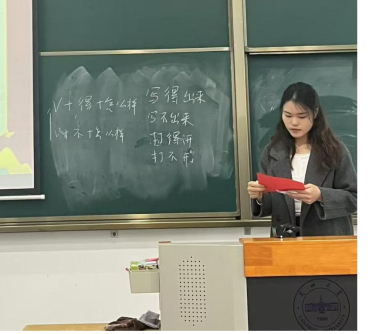 V+得+怎么样
V+不+怎么样
写得出来
写不出来
打得开
打不开